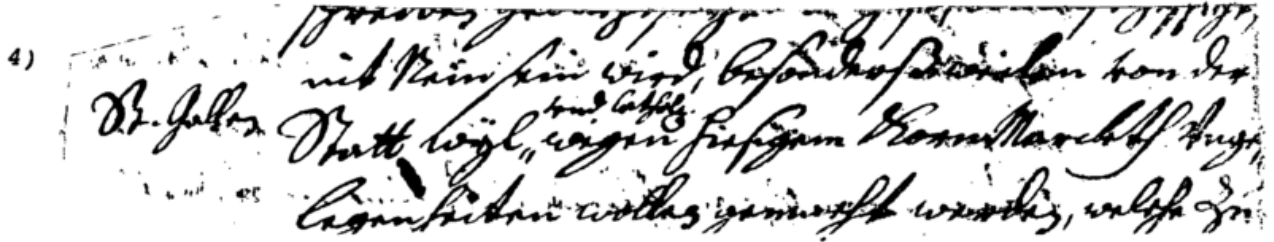 4)
St. Gallen
mit Nein sein wird, besonders weilen von der
und cathol.
Statt Wyl, wegen hiesigem Korn Marckth Ange„
legenheiten wollen gemacht werden, welche zu